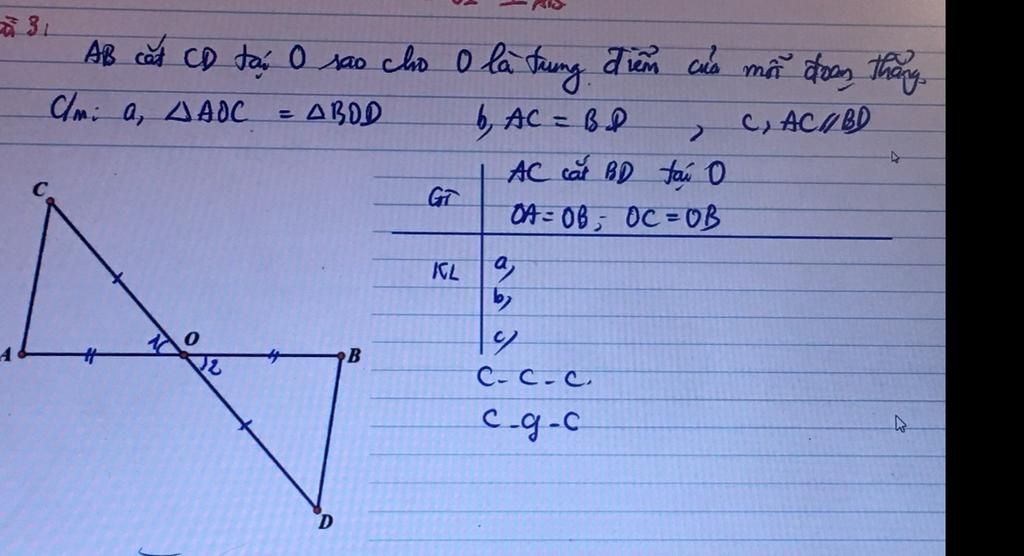 3,
AB cắt CD tại O sao cho O là trung điểm của mỗi đoạn thẳng.
C/m: a, △AOC = △BOD b, AC = BD , c, AC // BD
AC cắt BD tại O
GT
OA = OB; OC = OB
KL a,
b,
c,
C - C - C.
C - g - C
C
A
1
O
2
B
D